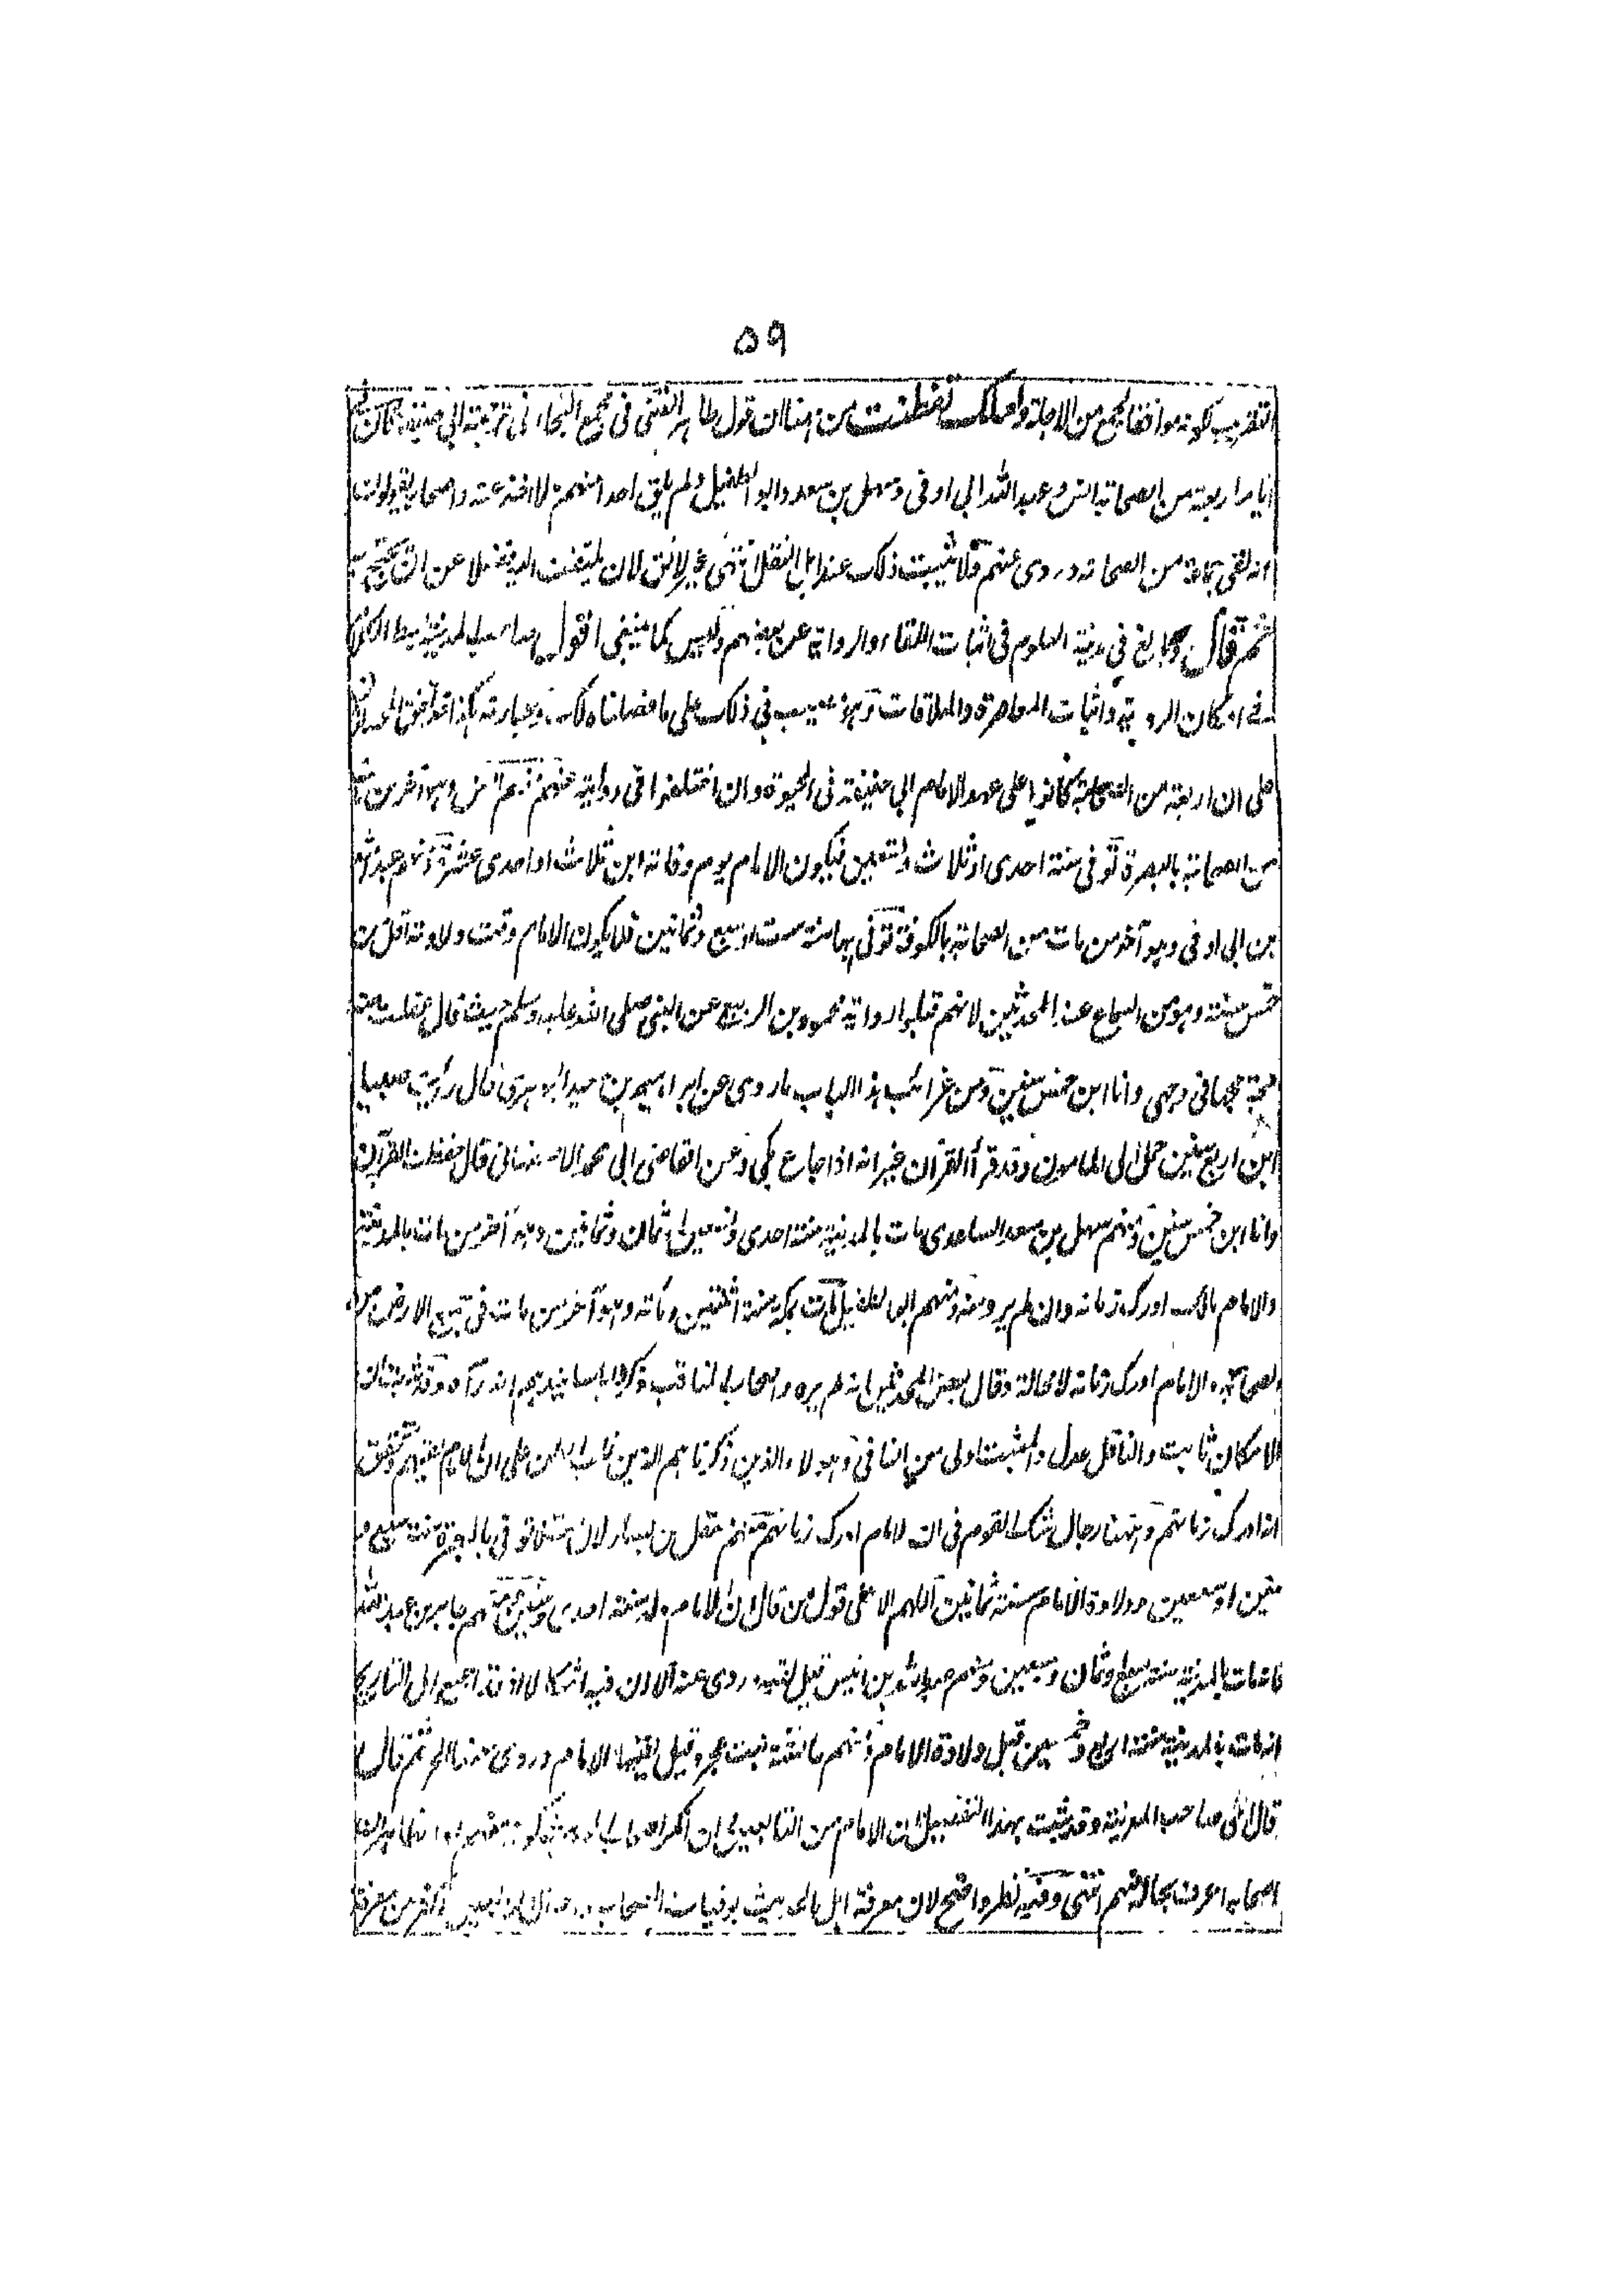 ٥٩
التقريب لكونه موافقا لجمع من الاجلة ولعلك تفطنت من ههنا ان قول طاهر الفتنى فى مجمع البحار فى ترجمة ابى حنيفة كان فى
ايامه اربعة من الصحابة انس وعبد الله بن ابى اوفى وسهل بن سعد وابو الطفيل ولم يلق احدا منهم ولا اخذ عنه واصحابه يقولون
انه لقى جماعة من الصحابة وروى عنهم ولا يثبت ذلك عند اهل النقل انتهى غير لائق لان يلتفت اليه فضلا عن ان يحتج به
ثم قال وبالغ فى مدينة العلوم فى اثبات اللقاء والرواية عن بعضهم وليس كما ينبغى اقول صاحب المدينة بسط الكلام
فى امكان الروية واثبات المعاصرة والملاقات وهو مصيب فى ذلك على ما فصلناه لك وعبارته هكذا قد اتفق المحدثون
على ان اربعة من الصحابة كانوا على عهد الامام ابى حنيفة فى الحيوة وان اختلفوا فى روايته عنهم منهم انس وهو آخر من مات
من الصحابة بالبصرة توفى سنة احدى او ثلاث وتسعين فيكون الامام يوم وفاته ابن ثلاث او احدى عشرة ومنهم عبد الله
بن ابى اوفى وهو آخر من مات من الصحابة بالكوفة توفى بها سنة ست او سبع وثمانين فلا يكون الامام وقت ولادته اقل من
خمس سنة وهو من السماع عند المحدثين لانهم قبلوا رواية محمود بن الربيع عن النبى صلى الله عليه وسلم حيث قال عقلت منه
مجة مجها فى وجهى وانا ابن خمس سنين ومن غرائب هذا الباب ما روى عن ابراهيم بن سعيد الجوهرى قال رأيت صبيا
ابن اربع سنين حمل الى المامون وقد قرأ القرآن غير انه اذا جاع بكى وعن القاضى ابى محمد الاصفهانى قال حفظت القرآن
وانا ابن خمس سنين ومنهم سهل بن سعد الساعدى مات بالمدينة سنة احدى وتسعين او ثمان وثمانين وهو آخر من مات بالمدينة
والامام مالك ادرك زمانه وان لم يرو عنه ومنهم ابو الطفيل مات بمكة سنة اثنتين ومائة وهو آخر من مات فى جميع الارض من
الصحابة والامام ادرك زمانه لا محالة وقال بعض المحدثين انه لم يره واصحاب المناقب ذكروا باسانيدهم انه رآه وقد ثبت ان
الامكان ثابت والناقل عدل والمثبت اولى من النافى وهولاء الذين ذكرناهم الذين على ان الامام
انه ادرك زمانهم وههنا رجال شك القوم فى ان الامام ادرك زمانهم منهم معقل بن يسار لانه توفى بالبصرة سنة
او سبعين وولادة الامام سنة ثمانين اللهم الا على قول من قال ان الامام ولد سنة احدى وستين ومنهم جابر بن عبد الله
فانه مات بالمدينة سنة سبع وثمان وسبعين ومنهم عبد الله بن انيس قيل لقيه وروى عنه الا ان فيه اشكالا اذ قد اجمع اهل التاريخ
انه مات بالمدينة سنة اربع وخمسين قبل ولادة الامام ومنهم عائشة بنت عجرد قيل لقيها الامام وروى عنها الخ ثم قال
قال صاحب المدينة وقد ثبت بهذا التفصيل ان الامام من التابعين وان انكر اصحاب الحديث
اصحابه اعرف بحاله منهم انتهى وفيه نظر واضح لان معرفة اهل الحديث بوفيات الصحابة اكثر من معرفة